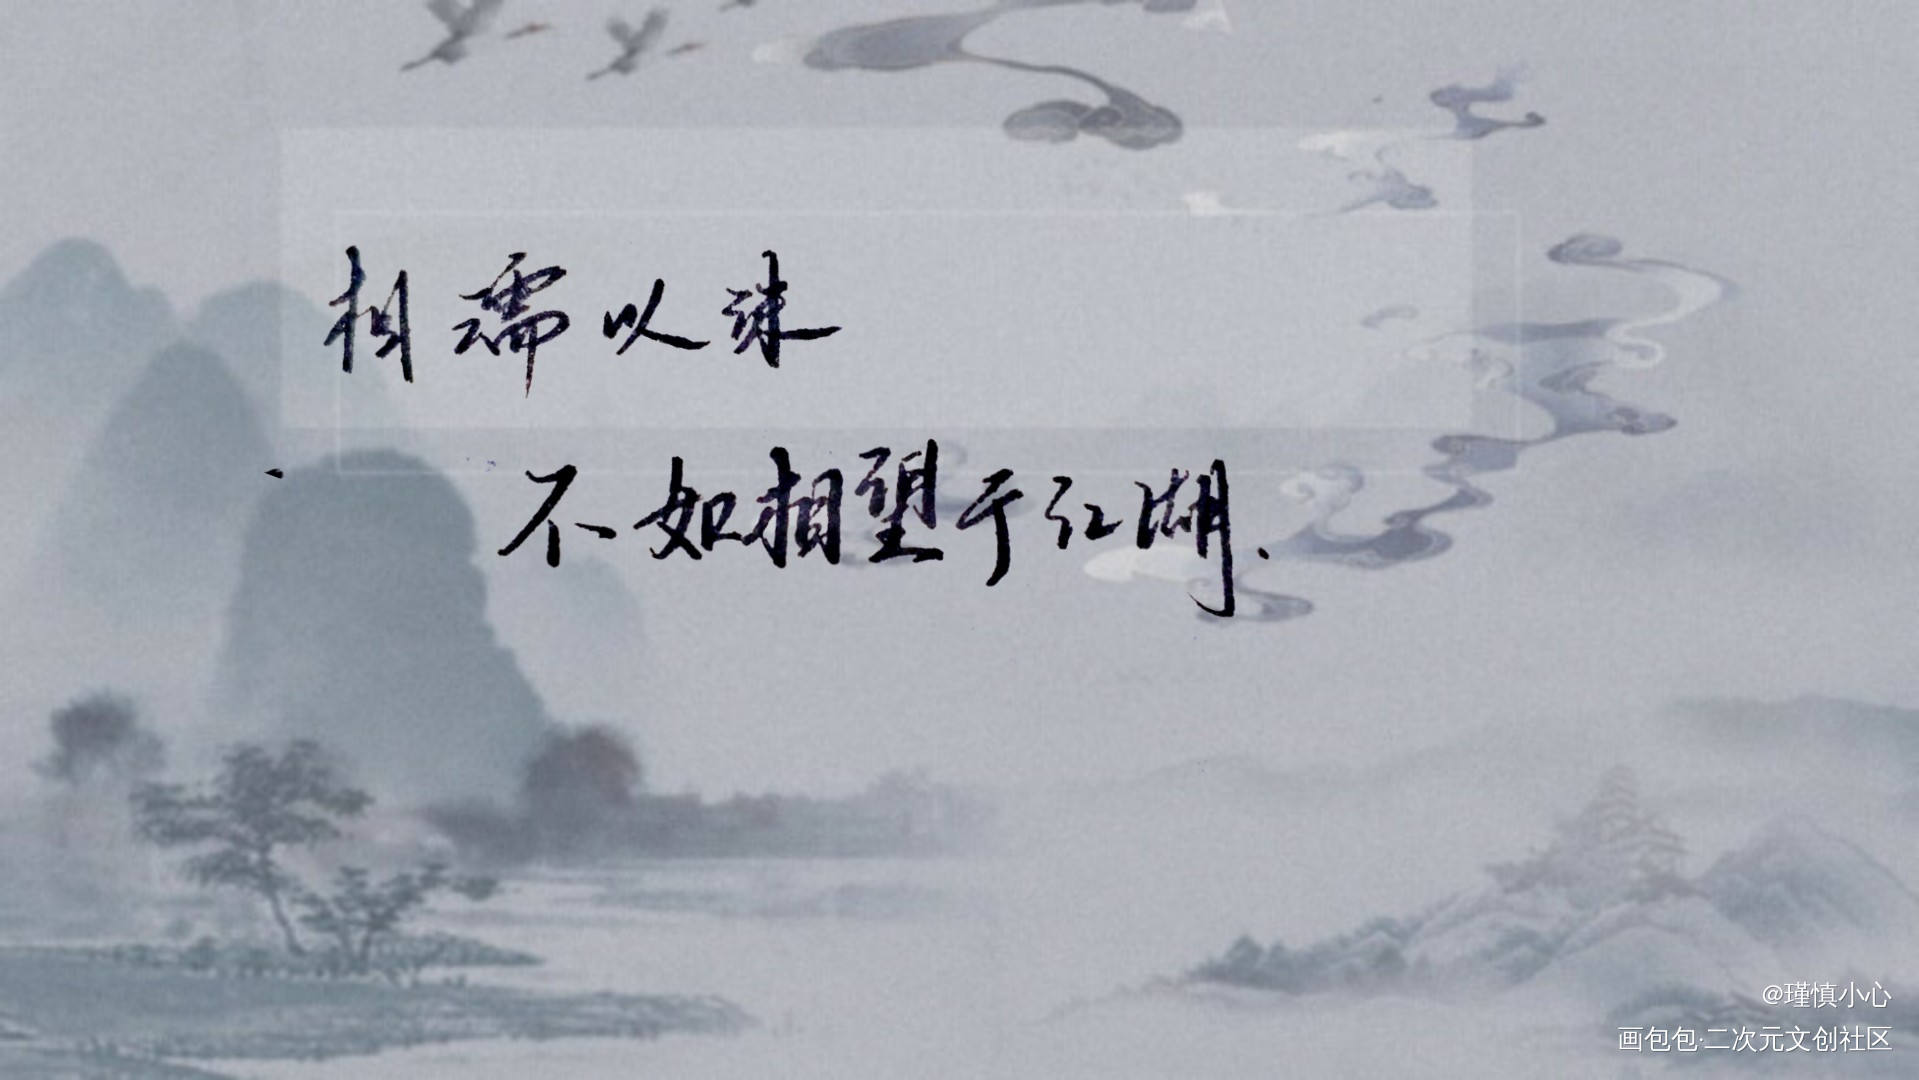 相濡以沫
不如相望于江湖.
@瑾慎小心
画包包·二次元文创社区